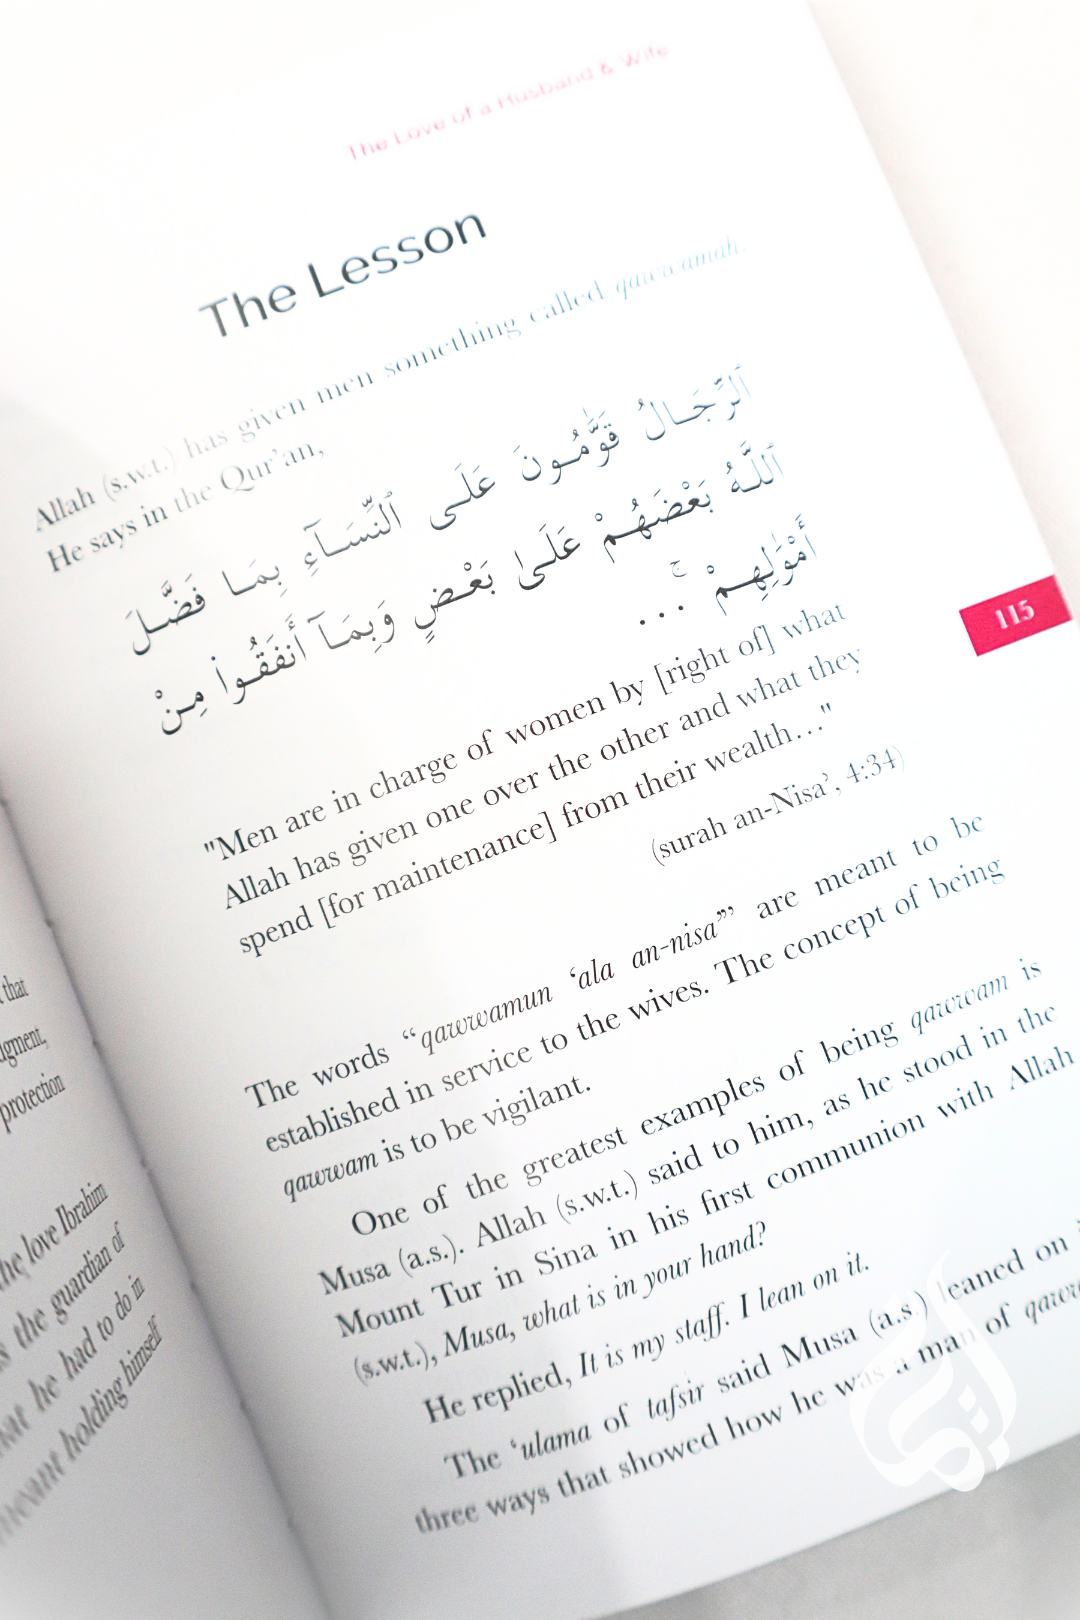 The Love of a Husband & Wife
The Lesson
Allah (s.w.t.) has given men something called qawwamah.
He says in the Qur'an,
ٱلرِّجَالُ قَوَّٰمُونَ عَلَى ٱلنِّسَآءِ بِمَا فَضَّلَ
ٱللَّهُ بَعْضَهُمْ عَلَىٰ بَعْضٍ وَبِمَآ أَنفَقُوا۟ مِنْ
أَمْوَٰلِهِمْ ۚ ...
"Men are in charge of women by [right of] what
Allah has given one over the other and what they
spend [for maintenance] from their wealth..."
(surah an-Nisa’, 4:34)
115
The words “qawwamun ‘ala an-nisa’” are meant to be
established in service to the wives. The concept of being
qawwam is to be vigilant.
One of the greatest examples of being qawwam is
Musa (a.s.). Allah (s.w.t.) said to him, as he stood in the
Mount Tur in Sina in his first communion with Allah
(s.w.t.), Musa, what is in your hand?
He replied, It is my staff. I lean on it.
The ‘ulama of tafsir said Musa (a.s.) leaned on
three ways that showed how he was a man of
that
protection
the love Ibrahim
the guardian of
he had to do in
meant holding himself